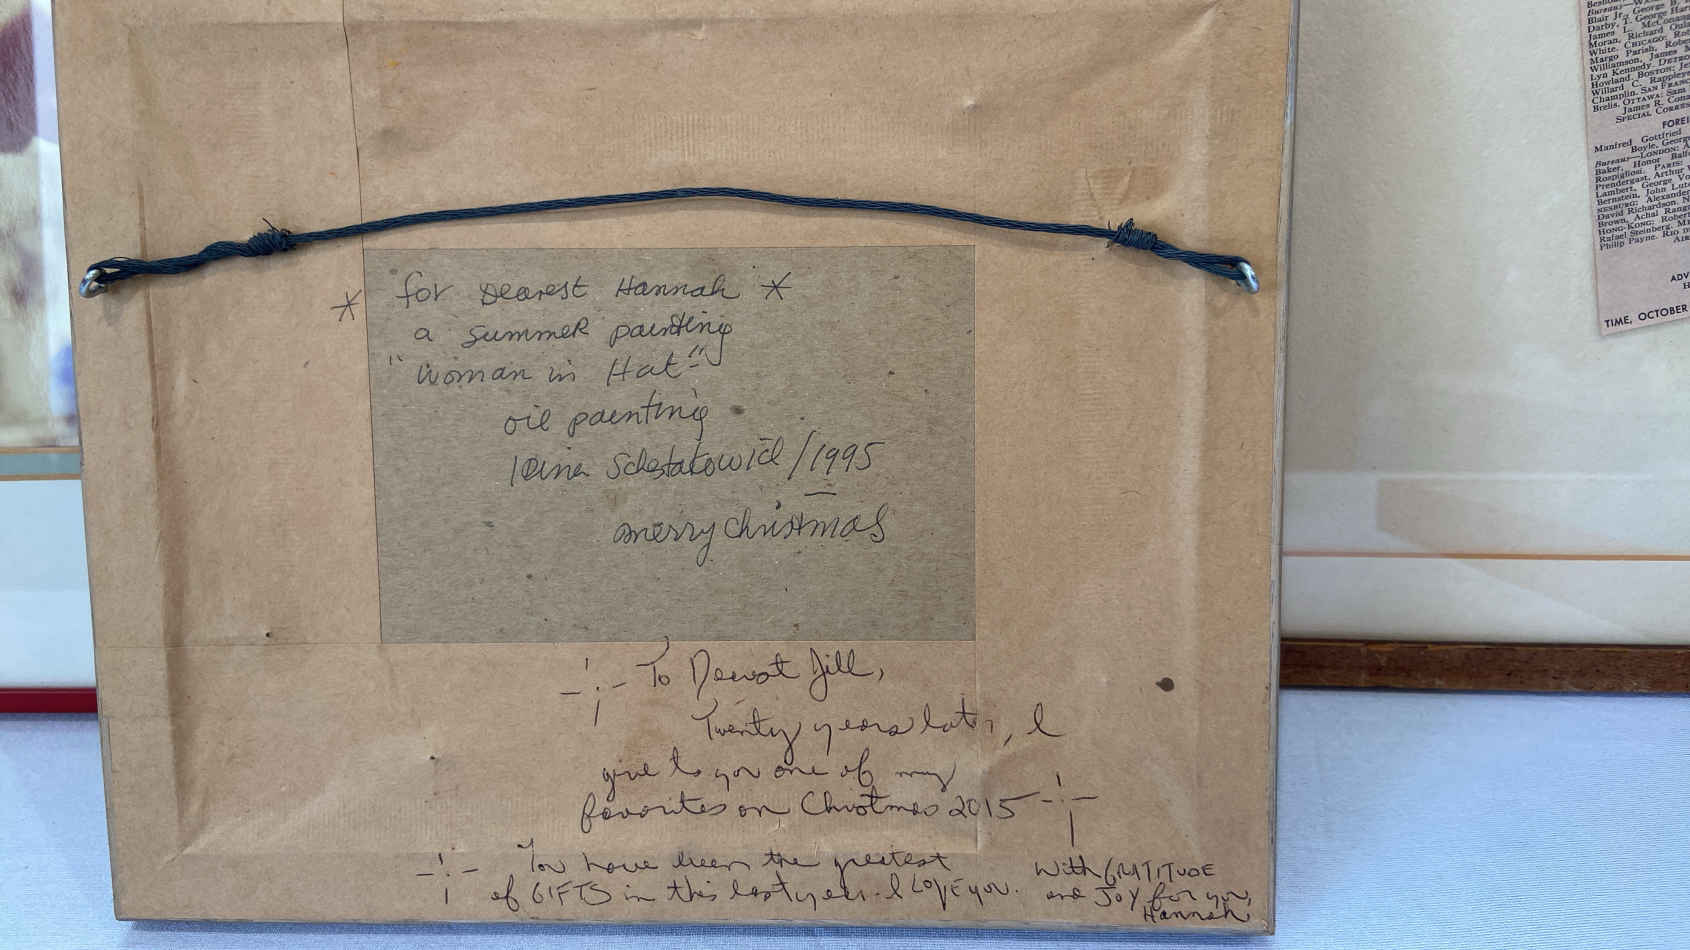 * for Dearest Hannah *
a summer painting
"Woman in Hat"
oil painting
/1995
merry christmas
To Dearest Jill,
Twenty years later, I
give to you one of my
favorites on Christmas 2015
You have been the greatest
of GIFTS in this last year. I LOVE you.
With GRATITUDE
and JOY for you,
Hannah
Blair Jr., George B.
Darby, T. George
James L.
Moran, Richard
White. CHICAGO:
Margo Parish,
Williamson, James
Lyn Kennedy.
Howland. BOSTON:
Willard C.
Champlin. SAN
Brelis. OTTAWA: Sam
James R.
SPECIAL
Manfred Gottfried
Boyle,
Bureaus—LONDON:
Baker, Honor
Rospigliosi. PARIS:
Prendergast, Arthur
Lambert, George
Bernstein, John
Alexander
David Richardson.
Brown, Achal
HONG KONG: Robert
Rafael Steinberg.
Philip Payne. RIO
TIME, OCTOBER